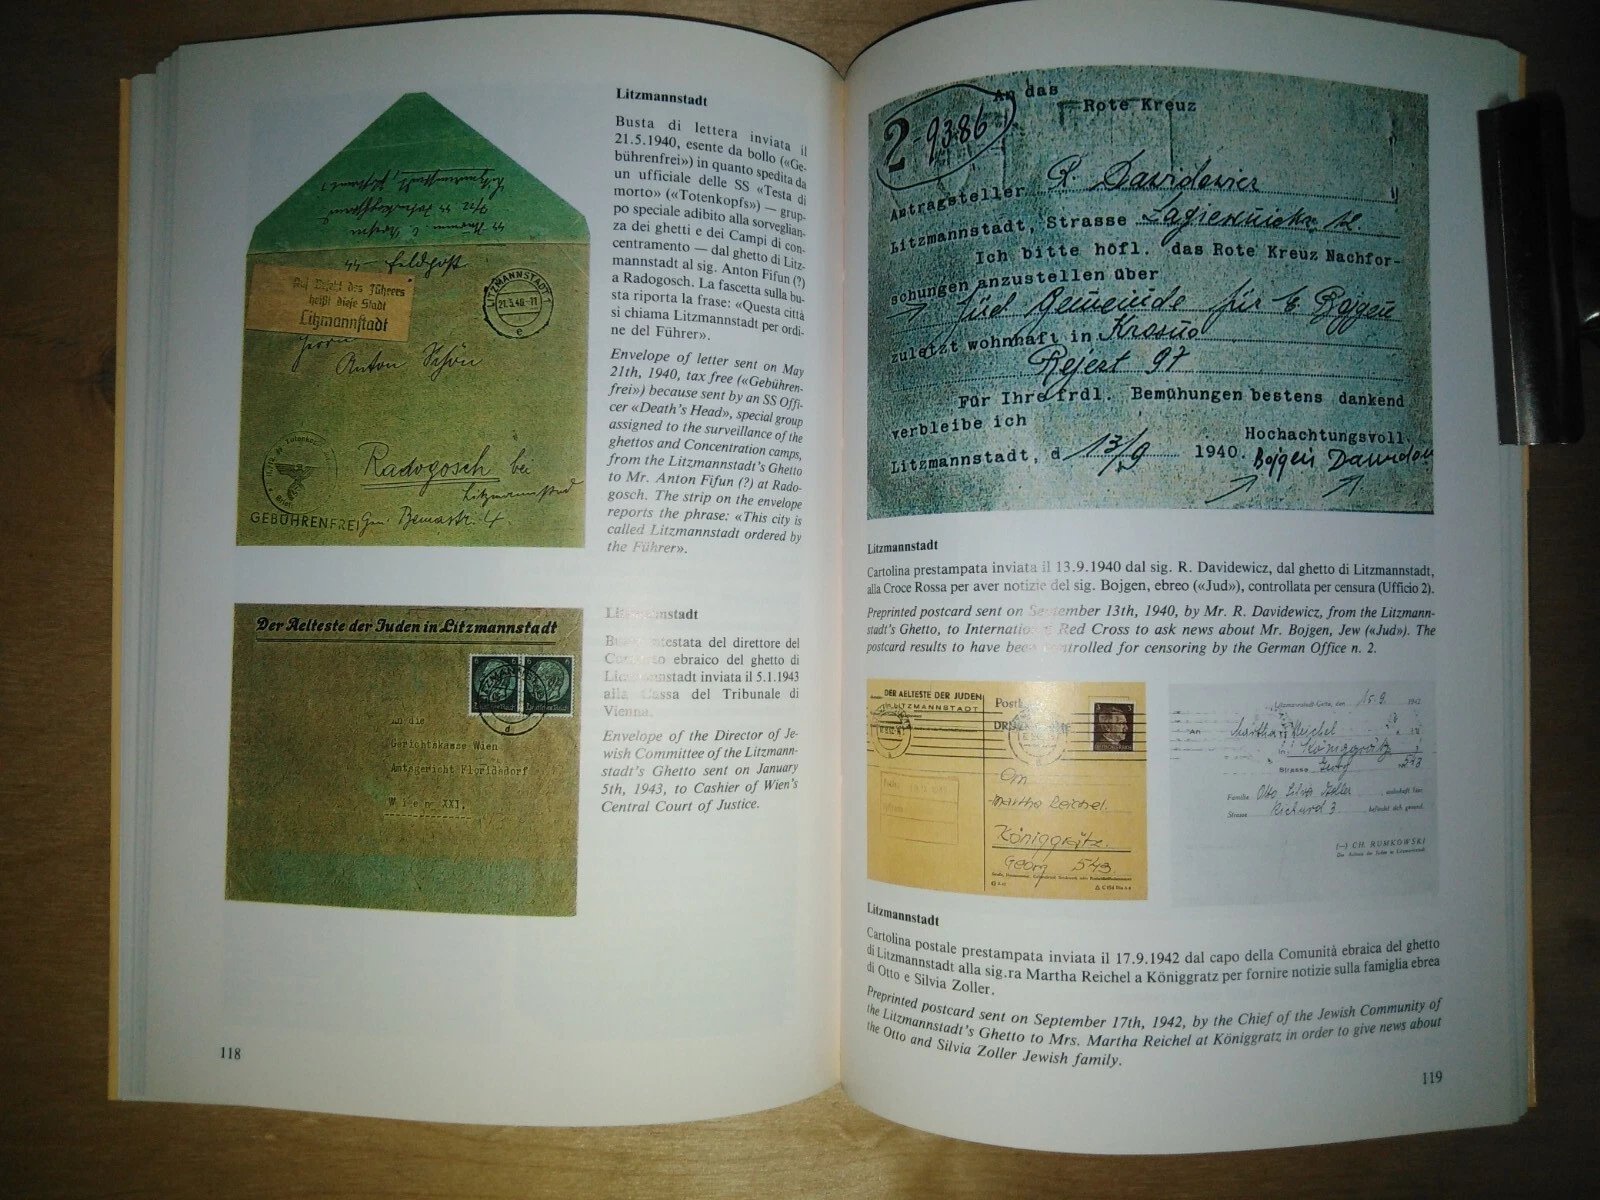 SS-Feldpost
Auf Befehl des Führers
heißt diese Stadt
Litzmannstadt
LITZMANNSTADT 1
21.5.40.-11
e
Herrn
Anton Schön
Radogosch bei
Litzmannstadt
GEBÜHRENFREI
4.
Litzmannstadt
Busta di lettera inviata il
21.5.1940, esente da bollo («Ge-
bührenfrei») in quanto spedita da
un ufficiale delle SS «Testa di
morto» («Totenkopfs») — grup-
po speciale adibito alla sorveglian-
za dei ghetti e dei Campi di con-
centramento — dal ghetto di Litz-
mannstadt al sig. Anton Fifun (?)
a Radogosch. La fascetta sulla bu-
sta riporta la frase: «Questa città
si chiama Litzmannstadt per ordi-
ne del Führer».
Envelope of letter sent on May
21th, 1940, tax free («Gebühren-
frei») because sent by an SS Offi-
cer «Death's Head», special group
assigned to the surveillance of the
ghettos and Concentration camps,
from the Litzmannstadt's Ghetto
to Mr. Anton Fifun (?) at Rado-
gosch. The strip on the envelope
reports the phrase: «This city is
called Litzmannstadt ordered by
the Führer».
Der Aelteste der Juden in Litzmannstadt
6 6
Deutsches Reich Deutsches Reich
d
An die
Gerichtskasse Wien
Amtsgericht Floridsdorf
Wien XXI.
Litzmannstadt
Busta intestata del direttore del
Comitato ebraico del ghetto di
Litzmannstadt inviata il 5.1.1943
alla Cassa del Tribunale di
Vienna.
Envelope of the Director of Je-
wish Committee of the Litzmann-
stadt's Ghetto sent on January
5th, 1943, to Cashier of Wien's
Central Court of Justice.
118
An das
Rote Kreuz
2-9386
Antragsteller R. Dawidowicz
Litzmannstadt, Strasse
Ich bitte höfl. das Rote Kreuz Nachfor-
schungen anzustellen über
Jüd Gemeinde für E Bojgen
zuletzt wohnhaft in Krosno
Rejest 97
Für Ihre frdl. Bemühungen bestens dankend
verbleibe ich
Hochachtungsvoll.
Litzmannstadt, d 13/9 1940. Bojgen Dawidow
Litzmannstadt
Cartolina prestampata inviata il 13.9.1940 dal sig. R. Davidewicz, dal ghetto di Litzmannstadt,
alla Croce Rossa per aver notizie del sig. Bojgen, ebreo («Jud»), controllata per censura (Ufficio 2).
Preprinted postcard sent on September 13th, 1940, by Mr. R. Davidewicz, from the Litzmann-
stadt's Ghetto, to International Red Cross to ask news about Mr. Bojgen, Jew («Jud»). The
postcard results to have been controlled for censoring by the German Office n. 2.
DER AELTESTE DER JUDEN
IN LITZMANNSTADT
3 3
An
Martha Reichel.
Königgrätz.
Georg 543
Litzmannstadt-Getto, den 15.9. 1942
An Martha Reichel
in Königgrätz
Strasse Georg Nr. 543
Familie Otto Silva Zoller
Strasse Richard 3. befindet sich gesund.
(—) CH. RUMKOWSKI
Der Aelteste der Juden in Litzmannstadt
Litzmannstadt
Cartolina postale prestampata inviata il 17.9.1942 dal capo della Comunità ebraica del ghetto
di Litzmannstadt alla sig.ra Martha Reichel a Königgratz per fornire notizie sulla famiglia ebrea
di Otto e Silvia Zoller.
Preprinted postcard sent on September 17th, 1942, by the Chief of the Jewish Community of
the Litzmannstadt's Ghetto to Mrs. Martha Reichel at Königgratz in order to give news about
the Otto and Silvia Zoller Jewish family.
119